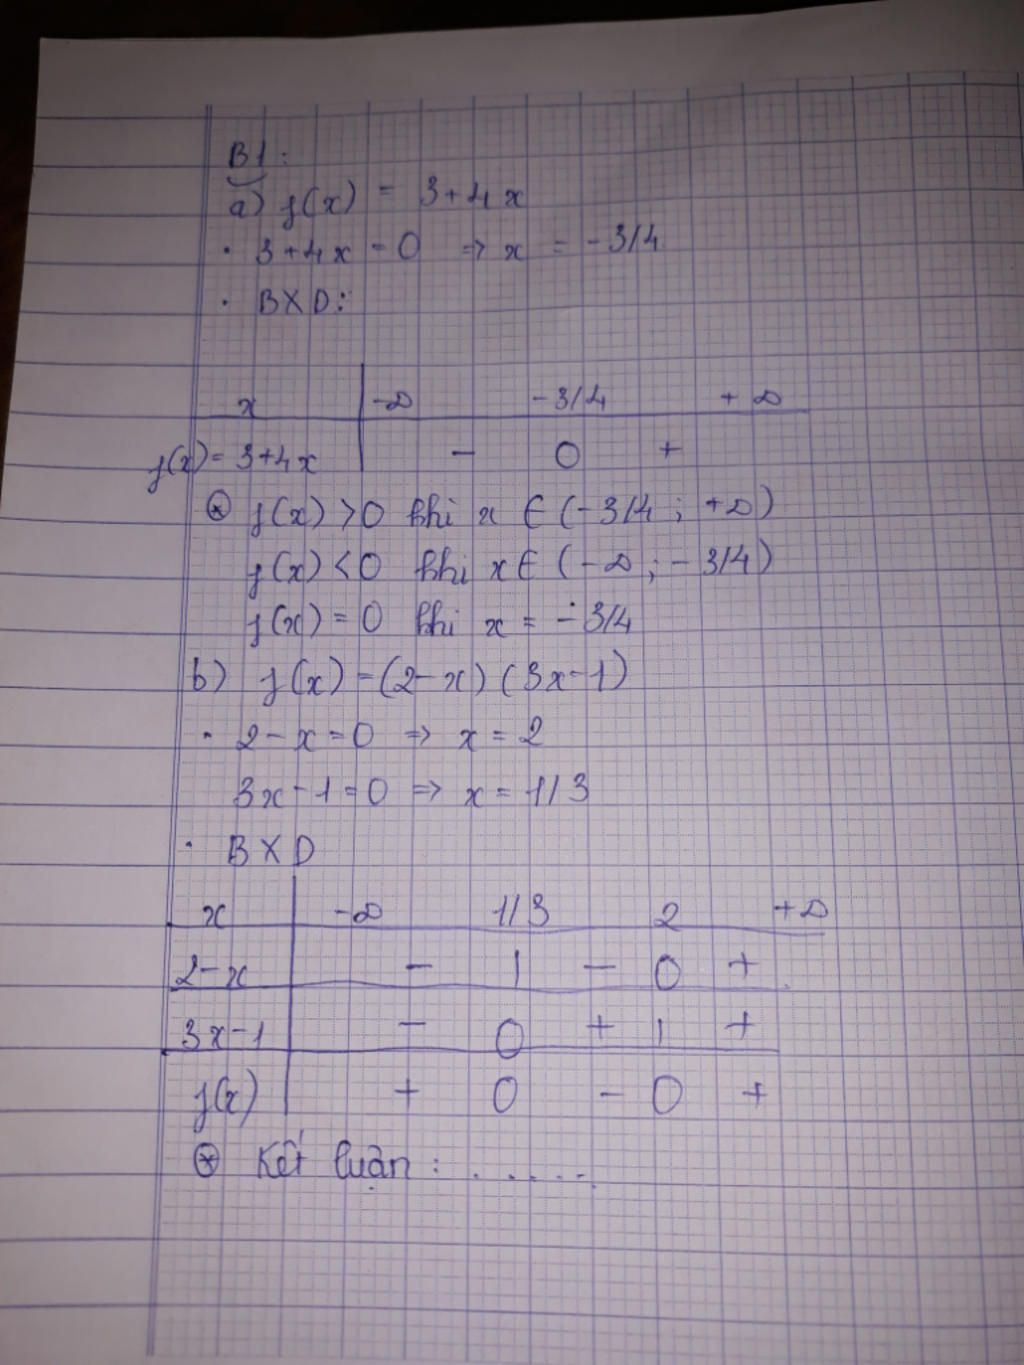 B1:
a) f(x) = 3+4x
· 3+4x = 0 => x = -3/4
· BXD:
x -∞ -3/4 +∞
f(x) = 3+4x - 0 +
⊛ f(x) > 0 khi x ∈ (-3/4 ; +∞)
f(x) < 0 khi x ∈ (-∞ ; -3/4)
f(x) = 0 khi x = -3/4
b) f(x) = (2-x) (3x-1)
· 2-x = 0 => x = 2
3x-1 = 0 => x = 1/3
· BXD
x -∞ 1/3 2 +∞
2-x - | - 0 +
3x-1 - 0 + | +
f(x) + 0 - 0 +
⊛ Kết luận : ......